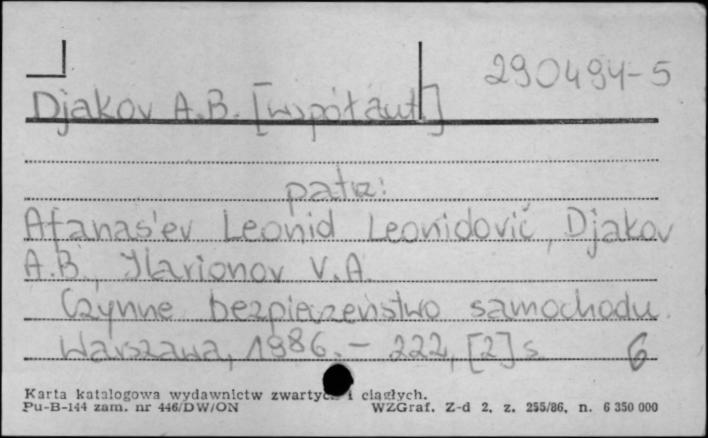 290494-5
Djakov A.B. [współaut.]
patrz:
Afanas'ev Leonid Leonidovič, Djakov
A.B., Ilarionov V.A.
Czynne bezpieczeństwo samochodu.
Warszawa, 1986. – 222, [2] s.
6
Karta katalogowa wydawnictw zwartych i ciągłych.
Pu-B-144 zam. nr 446/DW/ON WZGraf. Z-d 2, z. 255/86, n. 6 350 000